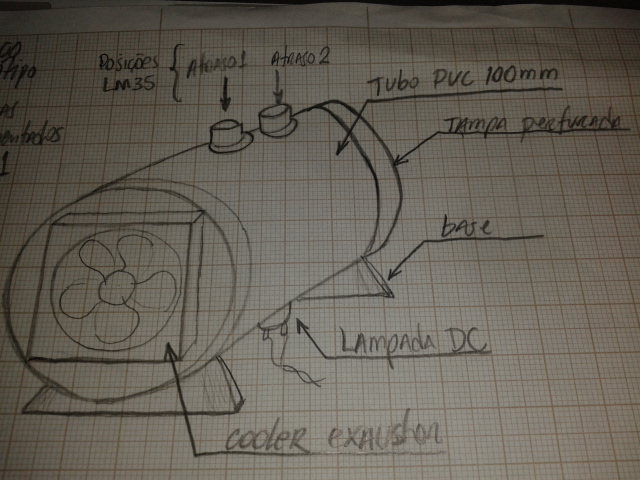 Posições
LM35
Atraso 1
Atraso 2
Tubo PVC 100mm
Tampa perfurada
base
Lampada DC
cooler exaustor